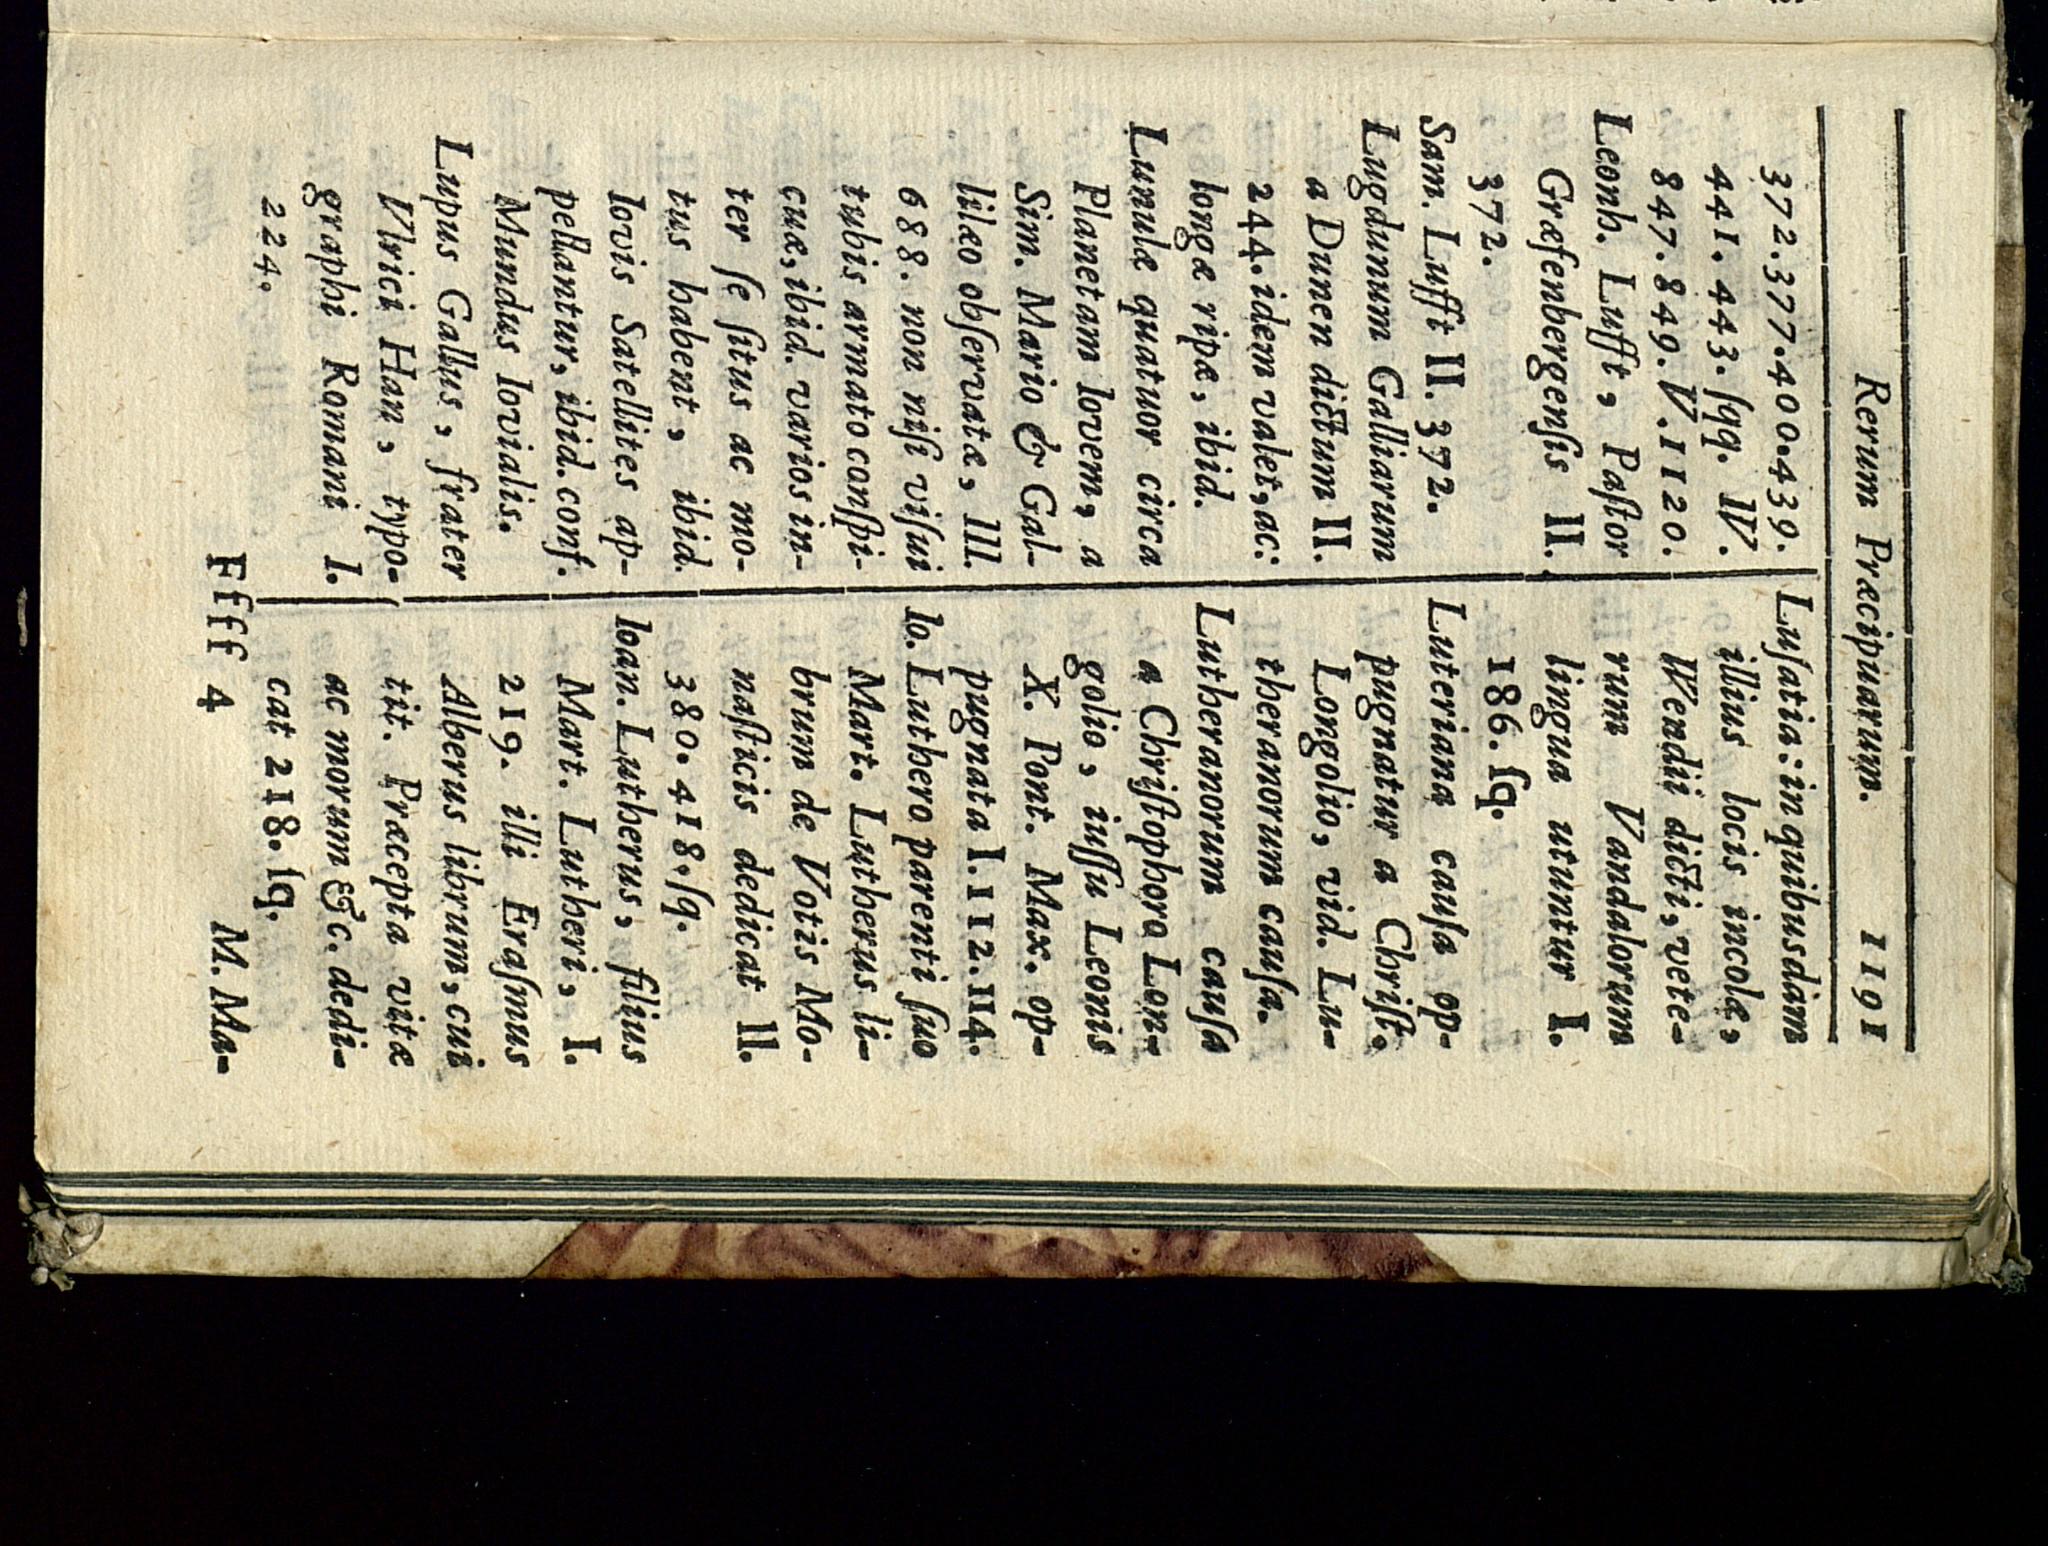 Rerum Præcipuarum. 1191
372.377.400.439.
441. 443. ſqq. IV.
847. 849. V. 1120.
Leonh. Lufft, Paſtor
Græfenbergenſis II.
372.
Sam. Lufft II. 372.
Lugdunum Galliarum
a Dunen dictum II.
244. idem valet, ac:
longæ ripæ, ibid.
Lunulæ quatuor circa
Planetam Iovem, a
Sim. Mario & Gal-
lilæo obſervatæ, III.
688. non niſi viſui
tubis armato conſpi-
cuæ, ibid. varios in-
ter ſe ſitus ac mo-
tus habent, ibid.
Iovis Satellites ap-
pellantur, ibid. conf.
Mundus Iovialis.
Lupus Gallus, frater
Vlrici Han, typo-
graphi Romani I.
224.
Luſatia: in quibusdam
illius locis incolæ,
Wendii dicti, vete-
rum Vandalorum
lingua utuntur I.
186. ſq.
Luteriana cauſa op-
pugnatur a Chriſt.
Longolio, vid. Lu-
theranorum cauſa.
Lutheranorum cauſa
a Chriſtophoro Lon-
golio, iuſſu Leonis
X. Pont. Max. op-
pugnata I. 112. 114.
Io. Luthero parenti ſuo
Mart. Lutherus li-
brum de Votis Mo-
naſticis dedicat II.
380. 418. ſq.
Ioan. Lutherus, filius
Mart. Lutheri, I.
219. illi Eraſmus
Alberus librum, cui
tit. Præcepta vitæ
ac morum &c. dedi-
cat 218. ſq.
Ffff 4 M. Ma-